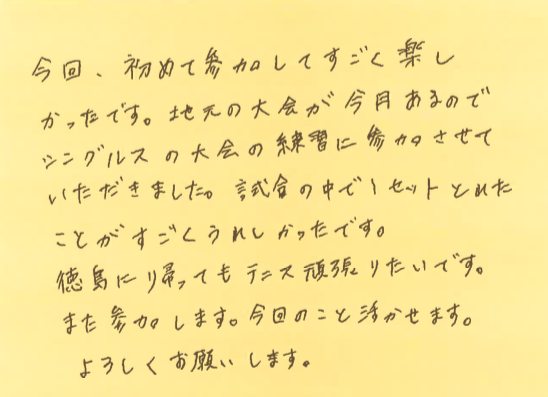 今回、初めて参加してすごく楽し
かったです。地元の大会が今月あるので
シングルスの大会の練習に参加させて
いただきました。試合の中で1セットとれた
ことがすごくうれしかったです。
徳島に帰ってもテニス頑張りたいです。
また参加します。今回のこと活かせます。
よろしくお願いします。